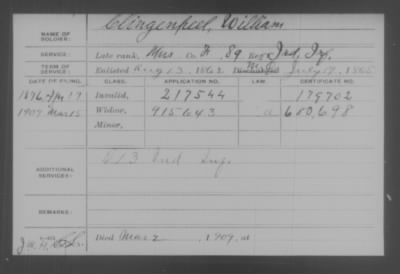 NAME OF SOLDIER: Clingenpeel, William
SERVICE: Late rank, Mus Co. A, 89 Reg't Ind. Inf.
TERM OF SERVICE: Enlisted Aug 13, 1862 July 19, 1865
DATE OF FILING. CLASS. APPLICATION NO. LAW. CERTIFICATE NO.
Invalid, 217544 179702
1909 Mar 15 Widow, 915643 680,698
Minor,
ADDITIONAL SERVICES: Ind Inf.
REMARKS:
Died Mar 2, 1909, at